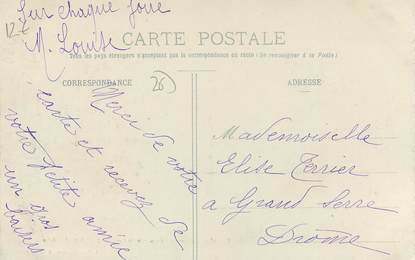 Sur chaque joue
M. Louise
12€
CARTE POSTALE
Tous les pays étrangers n'acceptent pas la correspondance au recto (Se renseigner à la Poste)
CORRESPONDANCE
26
ADRESSE
Merci de votre
carte et recevez de
votre petite amie
un gros
baisers
Mademoiselle
Elise Terrier
a Grand Serre
Drôme